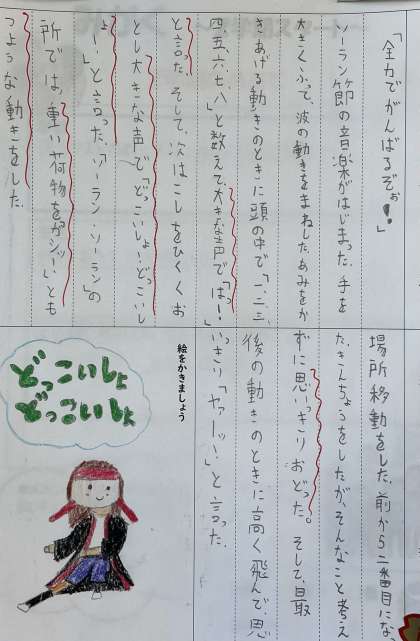 「全力でがんばるぞぉ!」
ソーラン節の音楽がはじまった。手を
大きくふって、波の動きをまねした。あみをか
きあげる動きのときに頭の中で「一、二、三、
四、五、六、七、八」と数えて、大きな声で「はっ!」
と言った。そして、次はこしをひくくお
とし大きな声で「どっこいしょーどっこいし
ょー!」と言った。「ソーラン、ソーラン」の
所では、重い荷物をガシッ!とも
つような動きをした。
場所移動をした。前から二番目にな
た。きんちょうをしたが、そんなこと考え
ずに思いっきりおどった。そして、最
後の動きのときに高く飛んで、思
いっきり「ヤァーッ!」と言った。
絵をかきましょう
どっこいしょ
どっこいしょ